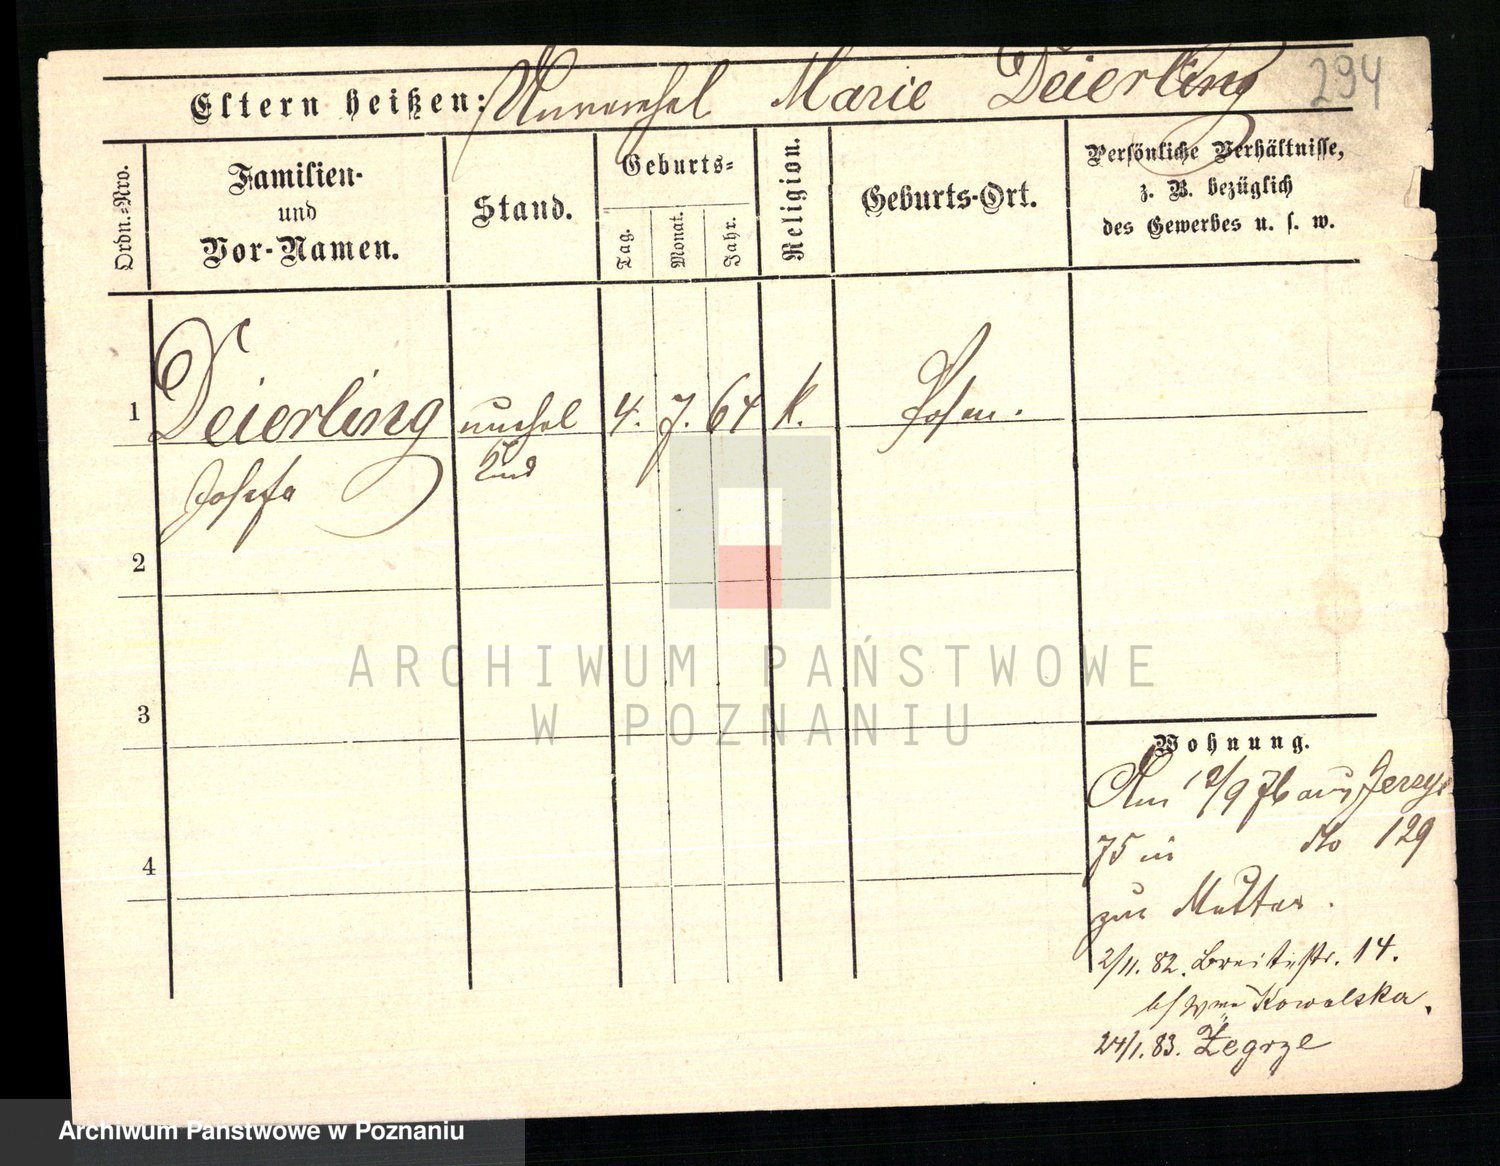 294
Eltern heißen: Unverehel Marie Deierling
Ordn.-Nro.
Familien-
und
Vor-Namen.
Stand.
Geburts-
Tag.
Monat.
Jahr.
Religion.
Geburts-Ort.
Persönliche Verhältnisse,
z. B. bezüglich
des Gewerbes u. s. w.
1 Deierling unehel 4. 7. 64 k. Posen.
Josefa Kind
2
3
4
Wohnung.
Am 12/9 76 aus Jerzyc
75 in No 129
zur Mutter.
2/11. 82. Breitestr. 14.
b/ Wwe Kowalska.
24/1. 83. Żegrze
ARCHIWUM PAŃSTWOWE
W POZNANIU
Archiwum Państwowe w Poznaniu